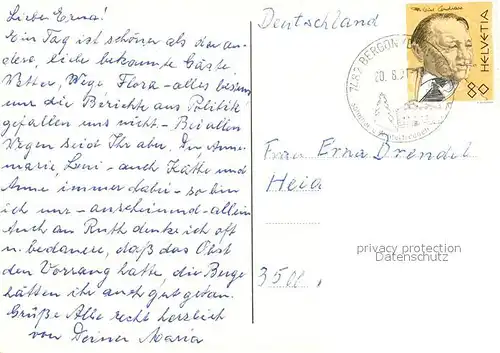 Liebe Erna!
Ein Tag ist schöner als der an-
dere, liebe bekannte Gäste,
Wetter, Wege, Flora - alles bestens
nur die Berichte aus Politik
gefallen uns nicht. - Bei allen
Wegen seid Ihr aber, Du, Anne-
marie, Leni - auch Käthe und
Anne immer dabei - so bin
ich nur - anscheinend - allein
Auch an Ruth denke ich oft
u. bedauere, daß das Obst
den Vorrang hatte, die Berge
hätten ihr auch gut getan.
Grüße Alle recht herzlich
von Deiner Maria
Deutschland
7482 BERGÜN
20. 8.
HELVETIA
80
Frau Erna Brendel
Heia
privacy protection
Datenschutz
3500